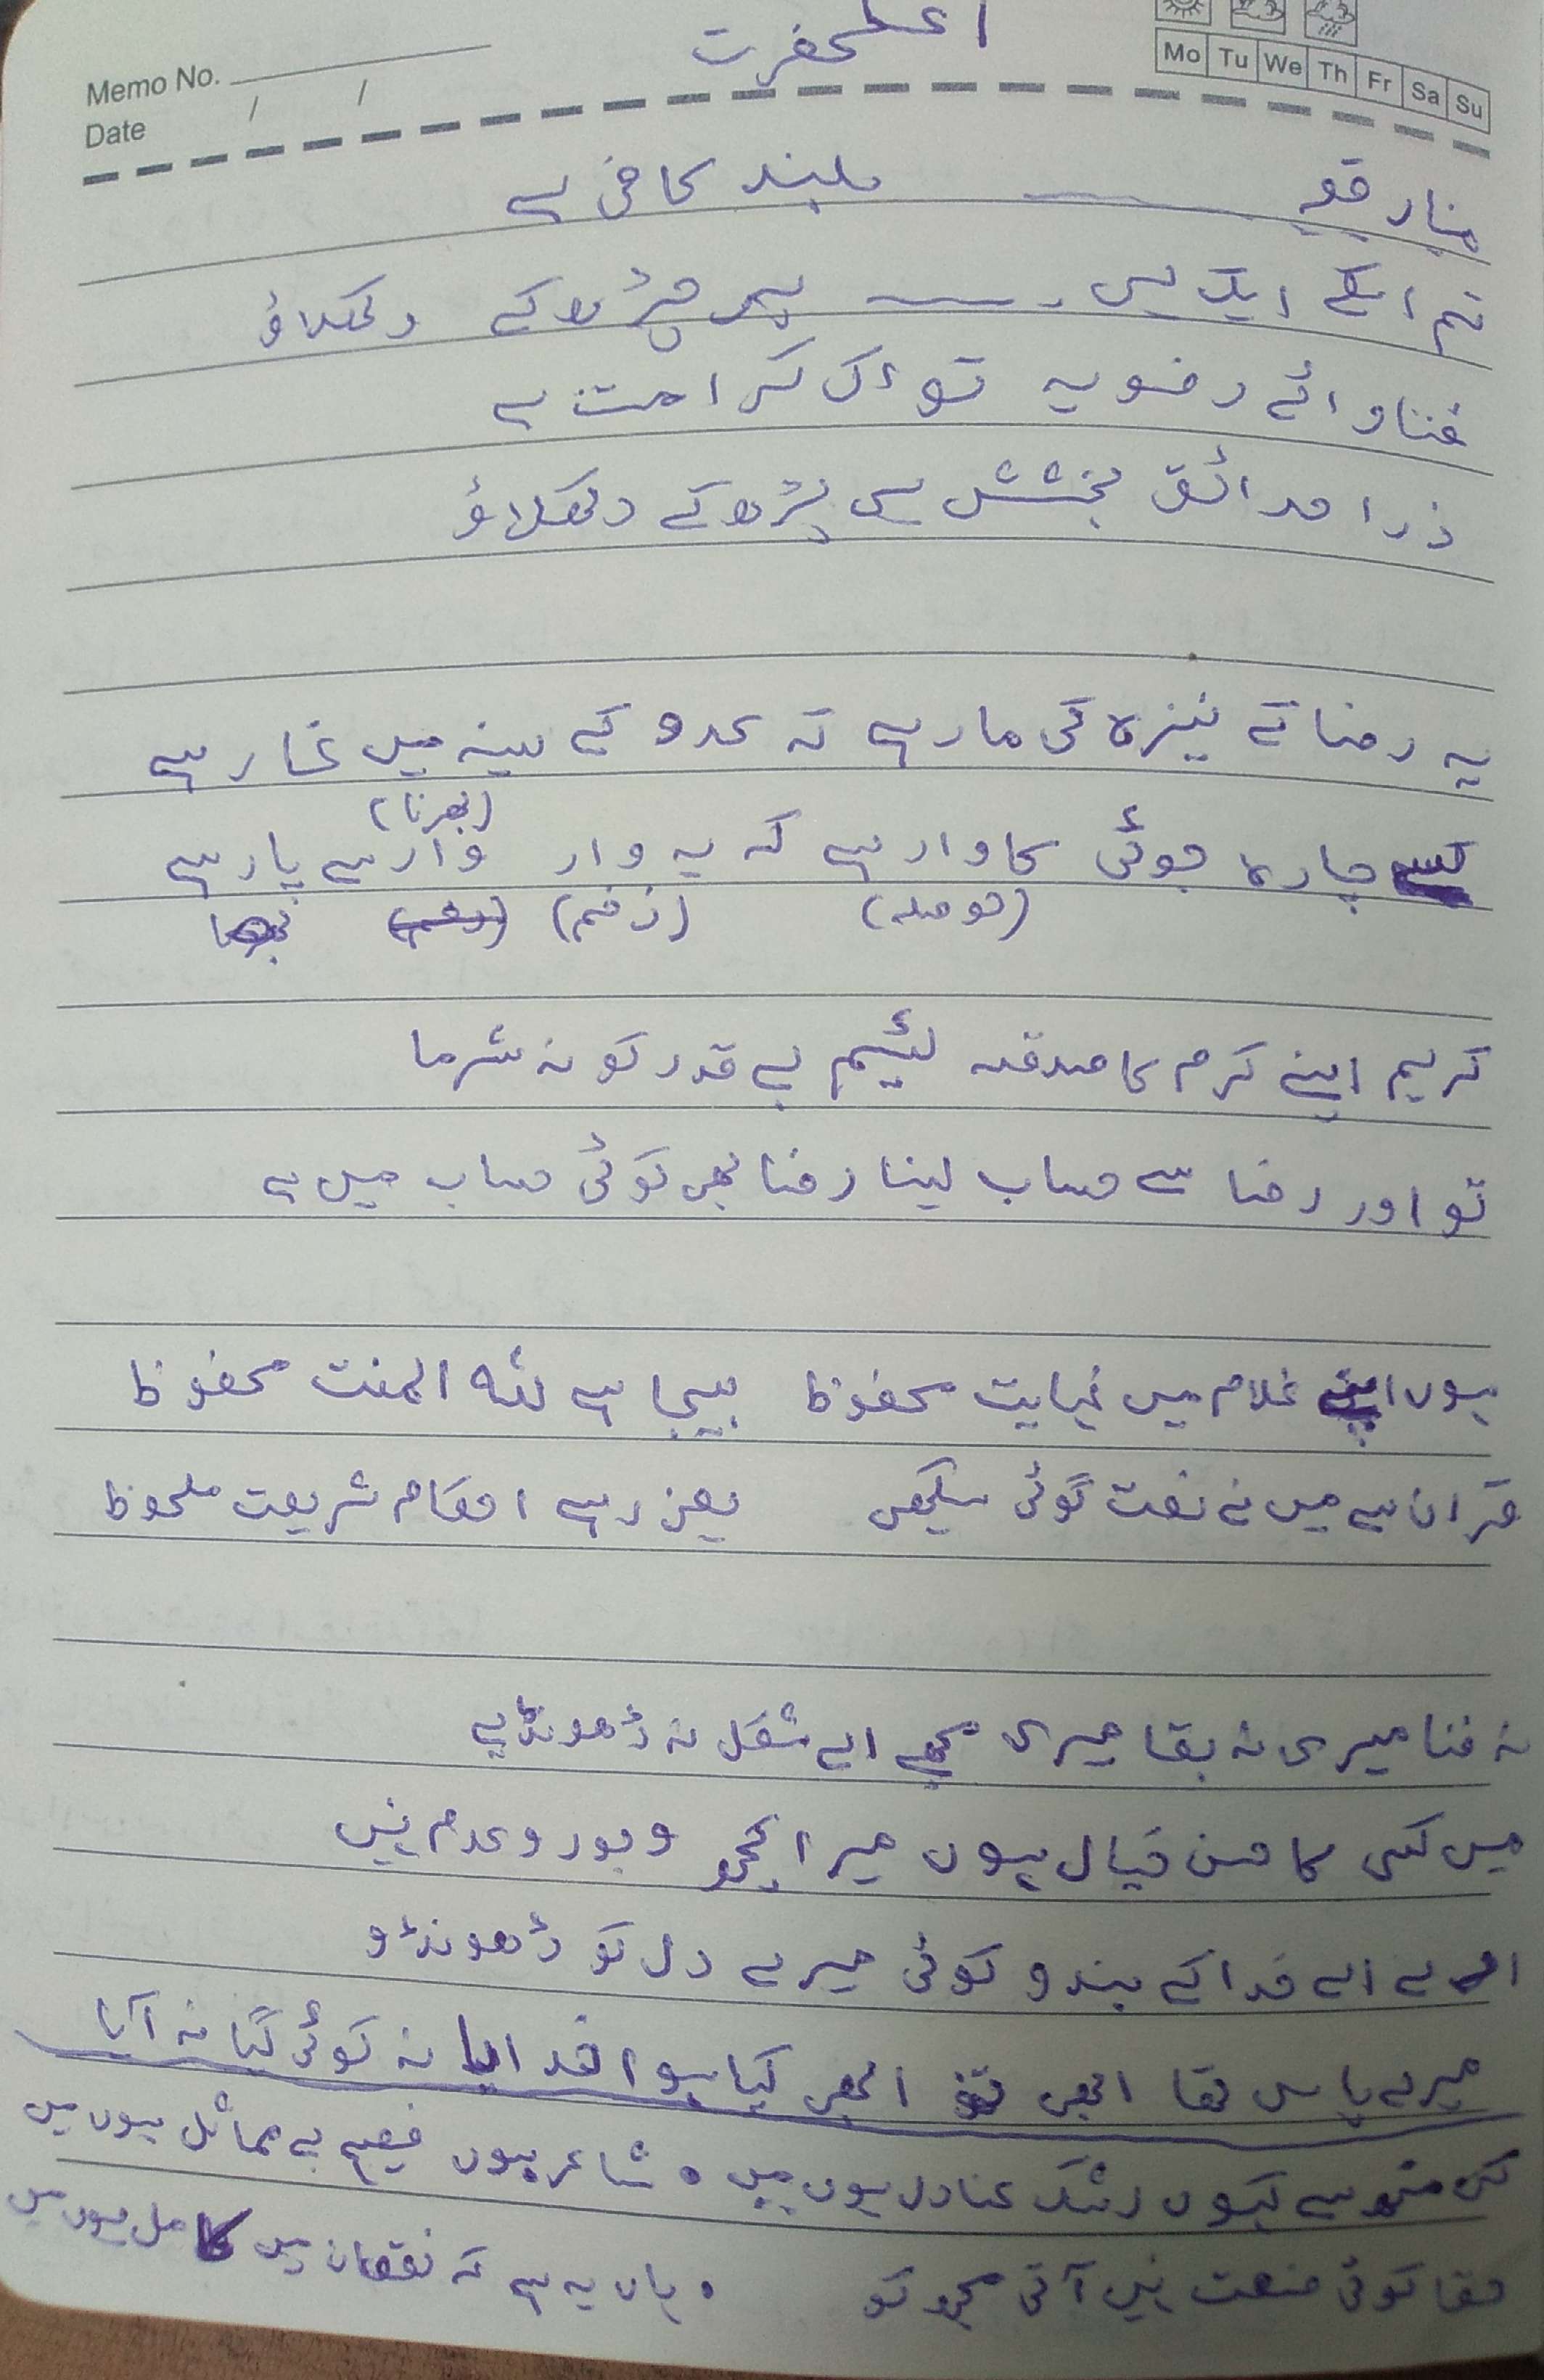 اعلحضرت
Mo Tu We Th Fr Sa Su
Memo No.
Date / /
منار قو بلند کافی ہے
تم اسکے ایک پر چڑھ کے دکھلاؤ
فتاوائے رضویہ تو اک کرامت ہے
ذرا حدائق بخشش ہی پڑھ کے دکھلاؤ
یہ رضا کے نیزہ کی مار ہے کہ عدو کے سینہ میں غار ہے
(بھرنا)
کسے چارہ جوئی کا وار ہے کہ یہ وار وار سے پار ہے
(حوصلہ) (زخم)
کریم اپنے کرم کا صدقہ لئیم بے قدر کو نہ شرما
تو اور رضا سے حساب لینا رضا بھی کوئی حساب میں ہے
ہوں اپنے کلام میں نہایت محفوظ بیجا ہے للہ المنت محفوظ
قران سے میں نے نعت گوئی سیکھی یعنی رہے احکام شریعت ملحوظ
نہ فنا میری نہ بقا میری مجھے اے شکل نہ ڈھونڈیے
میں کسی کا حسن خیال ہوں میرا کچھ وجود و عدم نہیں
ارے اے خدا کے بندو کوئی میرے دل کو ڈھونڈو
میرے پاس تھا ابھی تو ابھی کیا ہوا خدایا نہ کوئی گیا نہ آیا
کس منھ سے کہوں رشک عنادل ہوں میں ٥ شاعر ہوں فصیح بے مماثل ہوں میں
حقا کوئی صنعت نہیں آتی مجھ کو ٥ ہاں یہ ہے کہ نقصان میں کامل ہوں میں